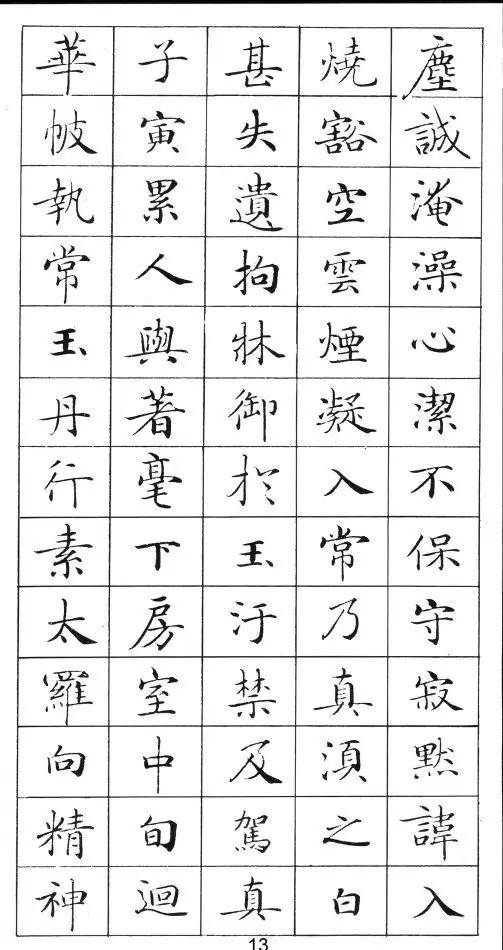 塵誠淹澡心潔不保守寂默諱入
燒豁空雲煙凝入常乃真湏之白
甚失遺拘牀御扵玉汙禁及駕真
子寅累人與著毫下房室中旬迴
華帔執常玉丹行素太羅向精神
13